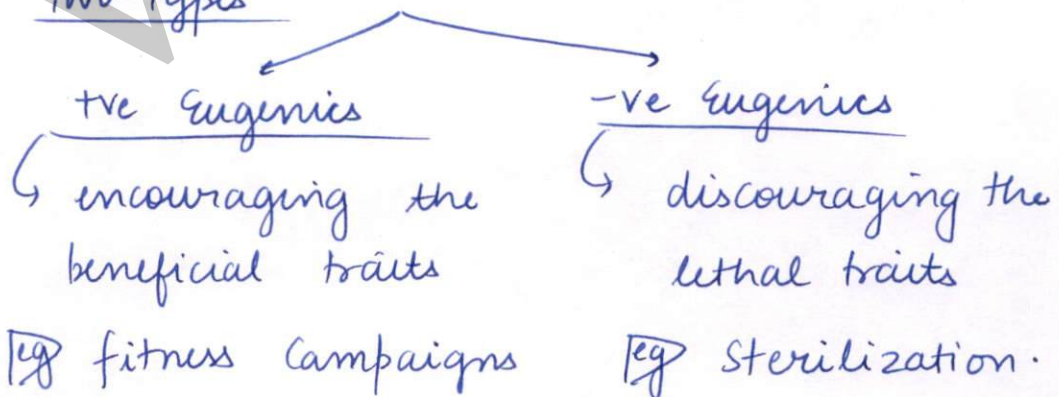 Two Types
+ve Eugenics
encouraging the
beneficial traits
eg fitness Campaigns
-ve Eugenics
discouraging the
lethal traits
eg Sterilization.